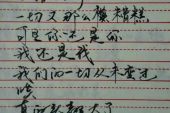 一切又那么模糊
可是你还是你
我还是我
我们的一切从未变过
唉
真的长大了